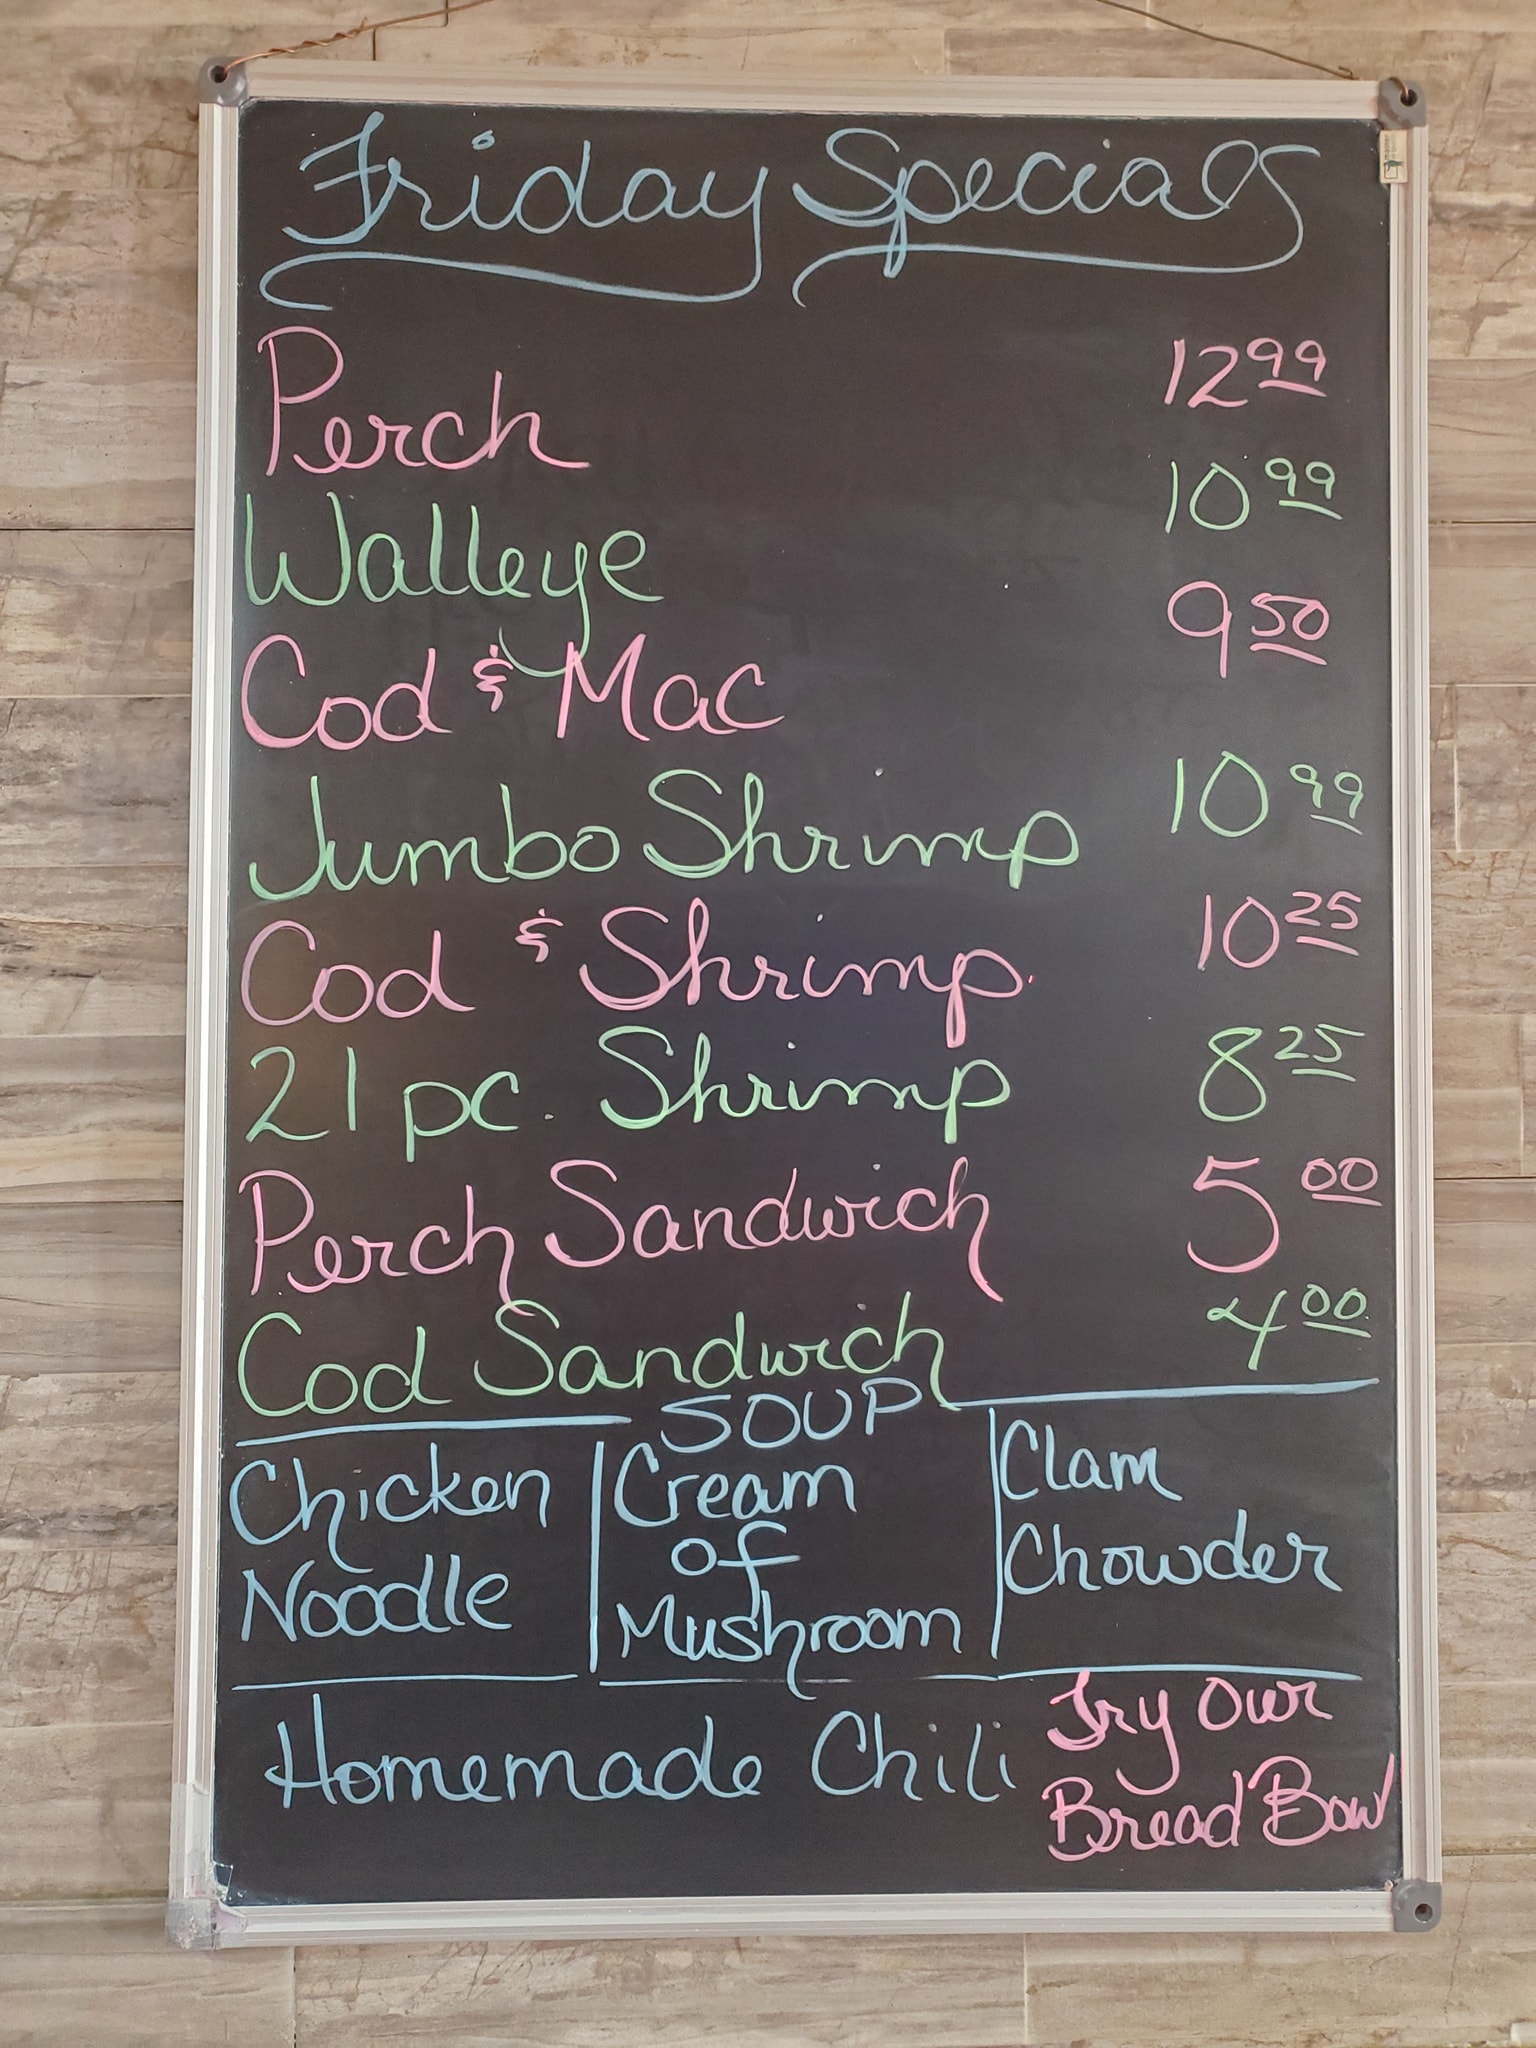 Friday Specials
Perch 12.99
Walleye 10.99
Cod & Mac 9.50
Jumbo Shrimp 10.99
Cod & Shrimp. 10.25
21 pc. Shrimp 8.25
Perch Sandwich 5.00
Cod Sandwich 4.00
SOUP
Chicken
Noodle
Cream
of
Mushroom
Clam
Chowder
Homemade Chili
Try Our
Bread Bowl